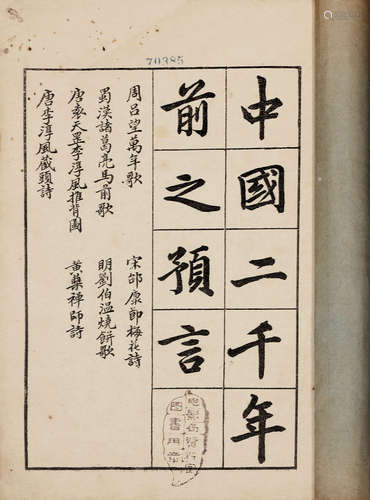 70385
中國二千年
前之預言
周呂望萬年歌
宋邵康節梅花詩
蜀漢諸葛亮馬前歌
明劉伯温燒餅歌
唐袁天罡李淳風推背圖
黃蘗禪師詩
唐李淳風藏頭詩
圖書用章